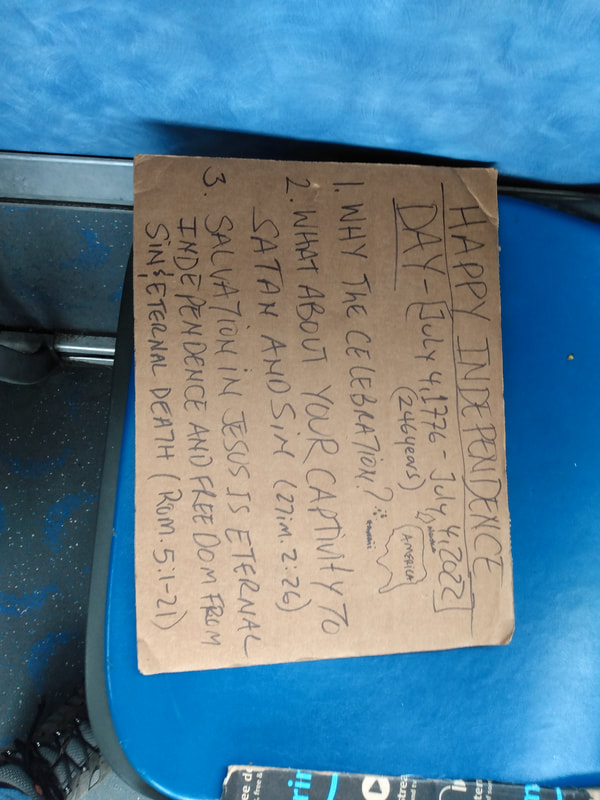 HAPPY INDEPENDENCE
DAY - [July 4, 1776 - July 4, 2022]
(246 years)
AMERICA
HAWAII
1. WHY THE CELEBRATION?
2. WHAT ABOUT YOUR CAPTIVITY TO
SATAN AND SIN (2Tim. 2:26)
3. SALVATION IN JESUS IS ETERNAL
INDEPENDENCE AND FREEDOM FROM
SIN & ETERNAL DEATH (Rom. 5:1-21)